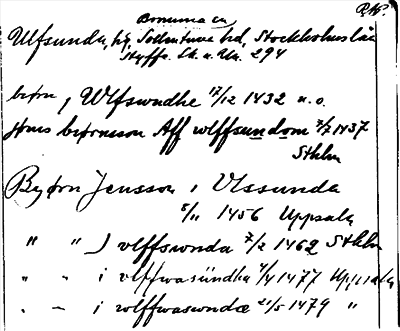 Bromma sn
Ulfsunda, hg, Sollentuna hd, Stockholms län
Styffe. Sk. u. Un. 294
biørn j Wlfswndhe 17/12 1432 u. o.
Jons biørnsson Aff wlffsundom 7/7 1437
Sthlm
Byørn Jensson i Vlssunda
5/11 1456 Uppsala
" " j vlffswnda 7/2 1462 Sthlm
" " i vlffwasündha 4/4 1477 Uppsala
" " i wlffwaswndæ 21/5 1479 "